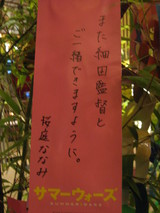 また細田監督と
ご一緒できますように。
桜庭ななみ
サマーウォーズ
SUMMERWARS